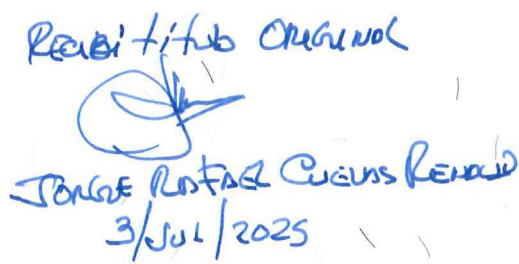 Recibi título Original
JORGE RAFAEL CUEVAS
3/JUL/2025